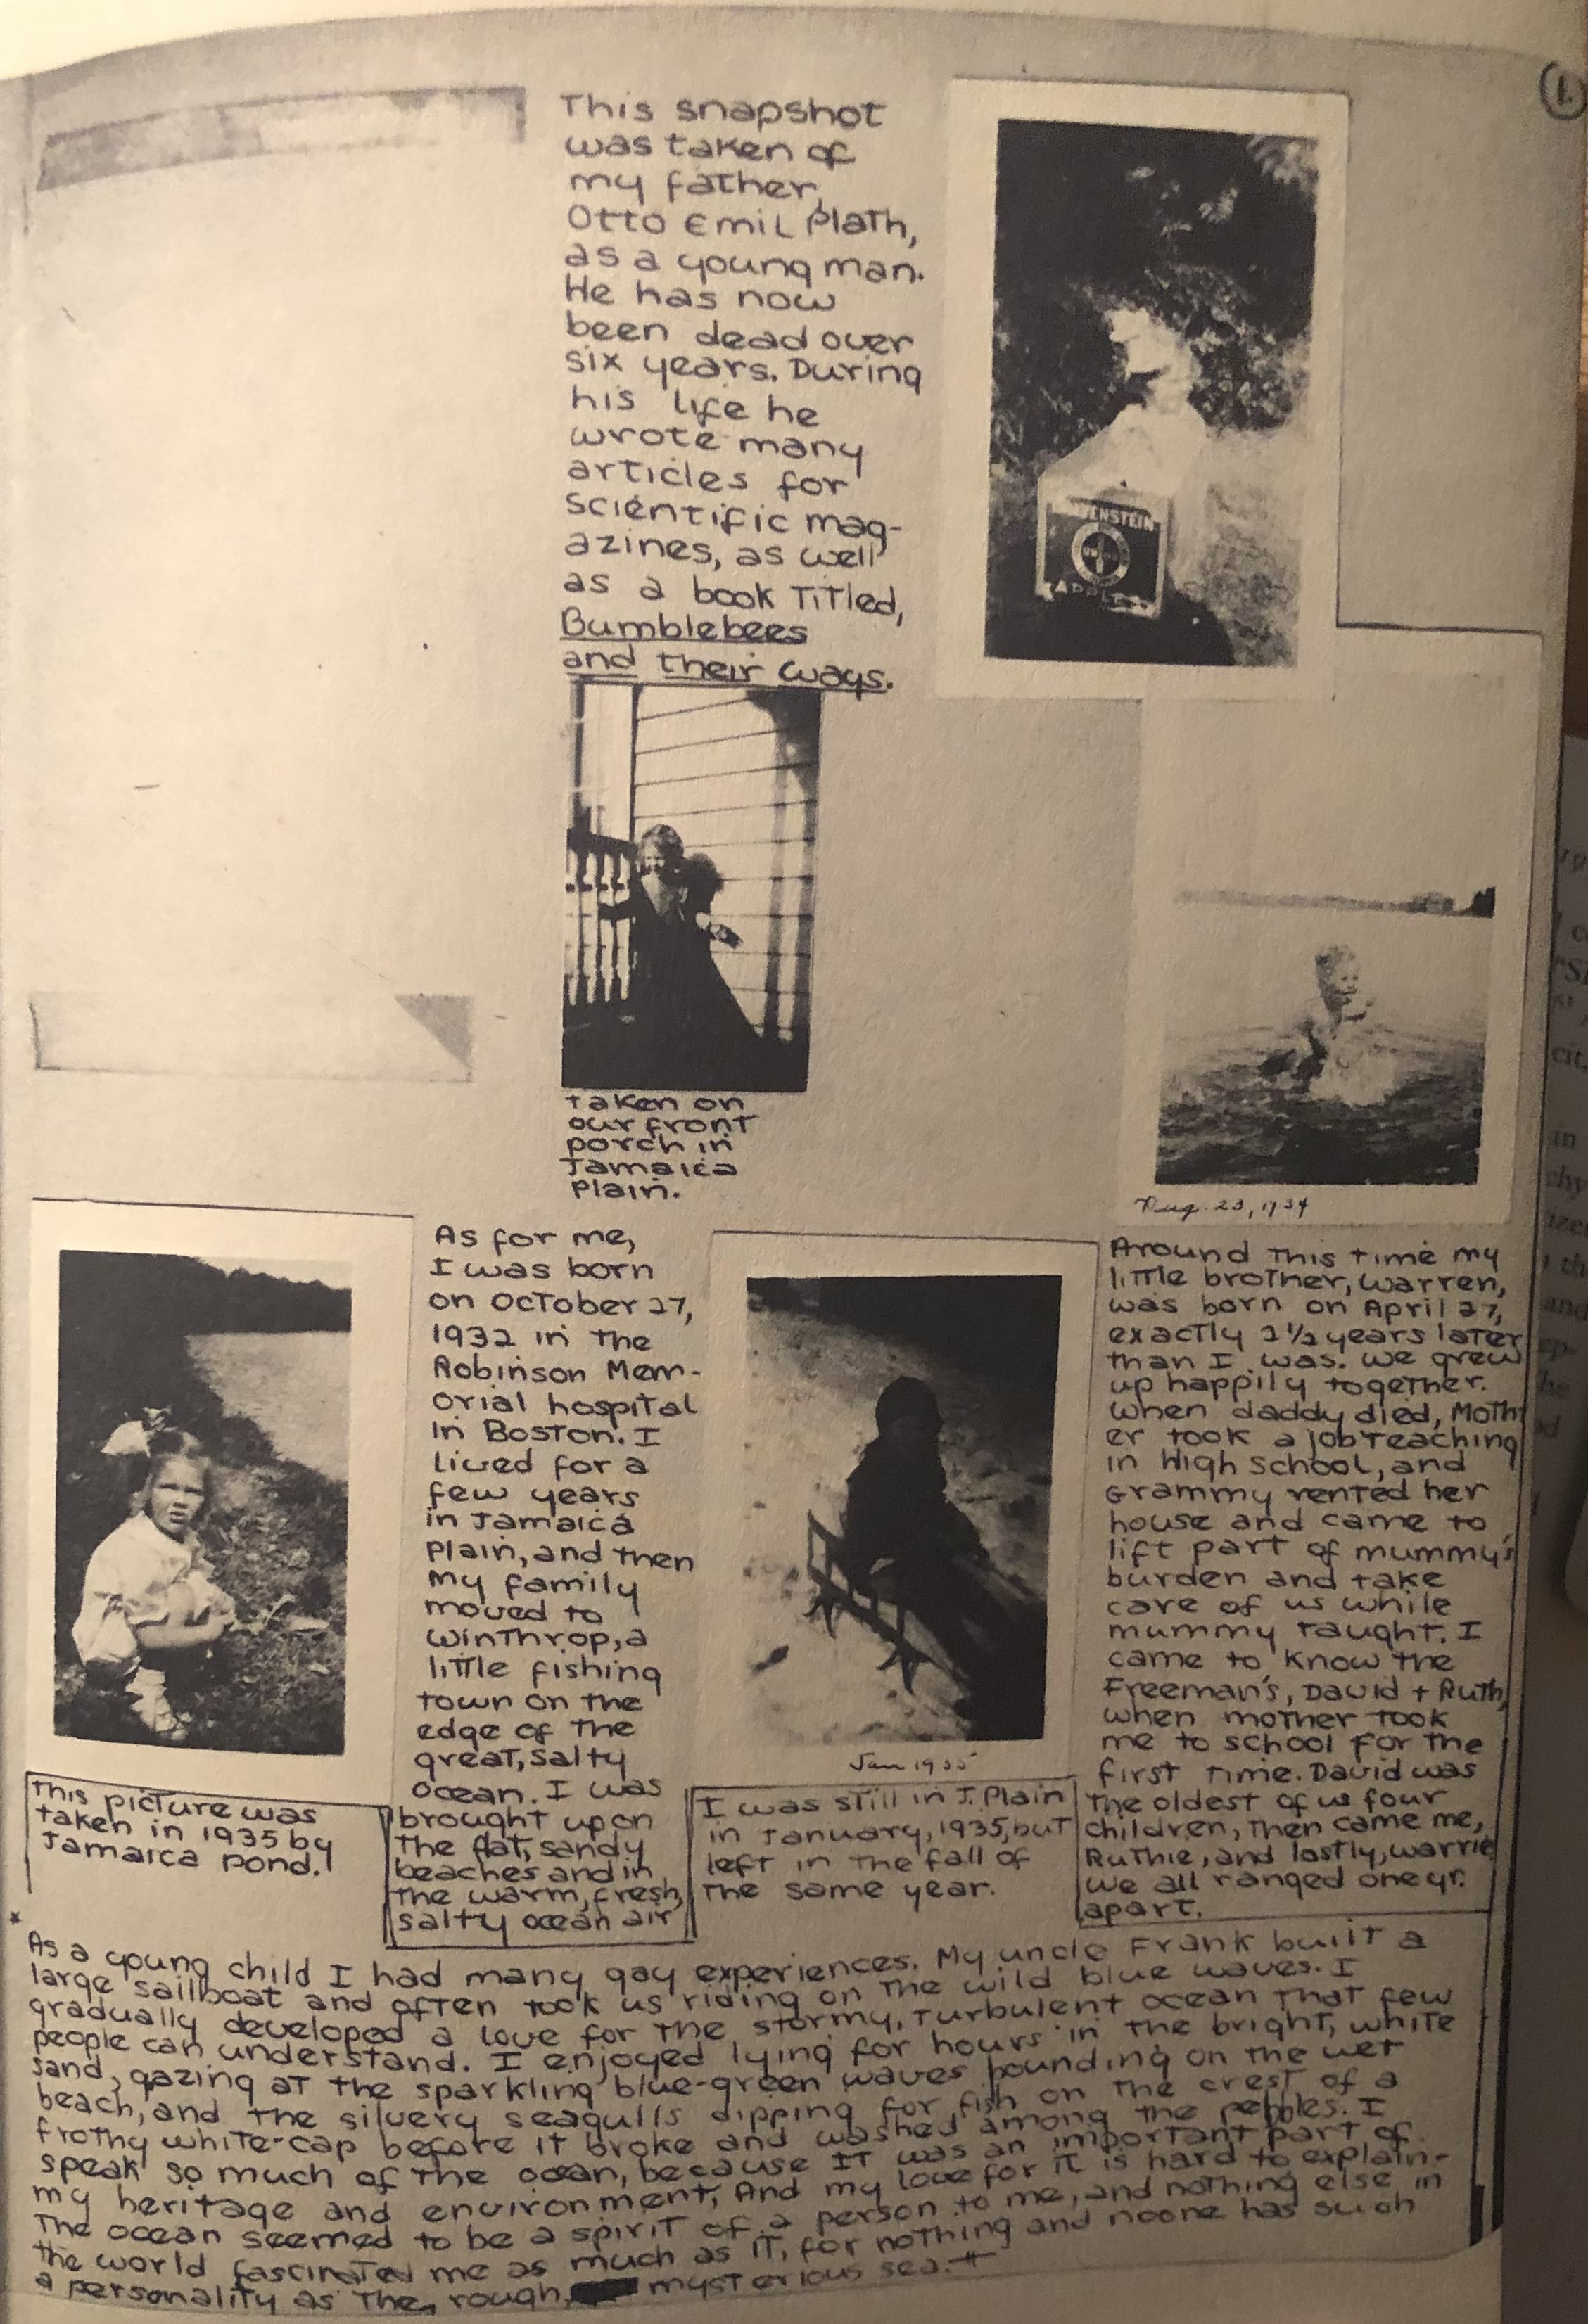 1.
This snapshot
was taken of
my father,
Otto Emil Plath,
as a young man.
He has now
been dead over
six years. During
his life he
wrote many
articles for
scientific mag-
azines, as well
as a book Titled,
Bumblebees
and their ways.
ENSTEIN
APPLES
taken on
our front
porch in
Jamaica
Plain.
Aug. 23, 1934
As for me,
I was born
on October 27,
1932 in the
Robinson Mem-
orial hospital
in Boston. I
lived for a
few years
in Jamaica
Plain, and then
my family
moved to
Winthrop, a
little fishing
town on the
edge of the
great, salty
ocean. I was
brought up on
the flat, sandy
beaches and in
the warm, fresh,
salty ocean air
This picture was
taken in 1935 by
Jamaica Pond.
Jan 1935
I was still in J. Plain
in January, 1935, but
left in the fall of
the same year.
Around this time my
little brother, Warren,
was born on April 27,
exactly 2½ years later
than I was. We grew
up happily together.
When daddy died, Moth
er took a job teaching
in High School, and
Grammy rented her
house and came to
lift part of mummy's
burden and take
care of us while
mummy taught. I
came to know the
Freeman's, David + Ruth,
when mother took
me to school for the
first time. David was
the oldest of us four
children, then came me,
Ruthie, and lastly, Warrie
We all ranged one yr.
apart.
* As a young child I had many gay experiences. My uncle Frank built a
large sailboat and often took us riding on the wild blue waves. I
gradually developed a love for the stormy, turbulent ocean that few
people can understand. I enjoyed lying for hours in the bright, white
sand, gazing at the sparkling blue-green waves pounding on the wet
beach, and the silvery seagulls dipping for fish on the crest of a
frothy white-cap before it broke and washed among the pebbles. I
speak so much of the ocean, because it was an important part of
my heritage and environment, And my love for it is hard to explain-
The ocean seemed to be a spirit of a person to me, and nothing else in
the world fascinated me as much as it, for nothing and noone has such
a personality as the, rough, mysterious sea.